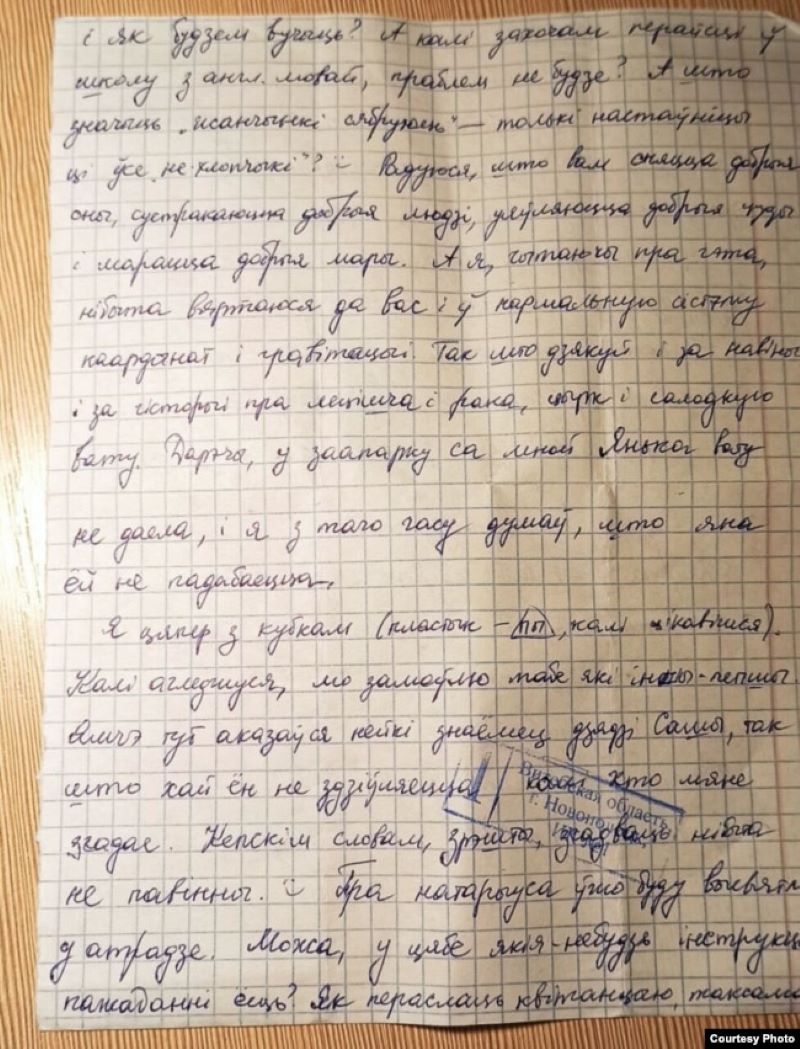 і як будзем вучыць? А калі захочам перайсці ў
школу з англ. мовай, праблем не будзе? А што
значыць „ сябружень" — толькі настаўніцы
ці ўсе „не-хлопчыкі"? Радуюся, што вам сняцца добрыя
сны, сустракаюцца добрыя людзі, уяўляюцца добрыя цуды
і марацца добрыя мары. А я, чытаючы пра гэта,
нібыта вяртаюся да вас і ў нармальную сістэму
каардынат і гравітацыі. Так што дзякуй і за навіны
і за гісторыі пра і рака, цырк і салодкую
вату. Дарэчы, у заапарку са мной Янькой вату
не даела, і я з таго часу думаў, што яна
ёй не падабаецца.
Я цяпер з кубкам (пластык – ПП, калі цікавішся).
Калі агледжуся, мо замоўлю табе які іншы-лепшы.
Яшчэ тут аказаўся нейкі знаёмец дзядзі Сашы, так
што хай ён не здзіўляецца, калі хто мяне
згадае. Кепскім словам, зрэшты, згадваць нібыта
не павінны. Пра натарыуса ўжо буду высвятл
у атрадзе. Можа, у цябе якія-небудзь інструкц
пажаданні ёсць? Як пераслаць квітанцыю, таксама
Витебская область
г. Новопо
Courtesy Photo